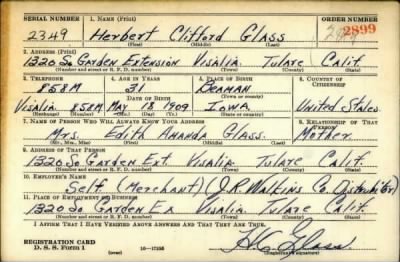 SERIAL NUMBER 1. NAME (Print) 2899
2349 Herbert Clifford Glass
(First) (Middle) (Last)
2. ADDRESS (Print)
1320 So Garden Extension Visalia Tulare Calif.
(Number and street or R. F. D. number) (Town) (County) (State)
3. TELEPHONE 4. AGE IN YEARS 5. PLACE OF BIRTH 6. COUNTRY OF CITIZENSHIP
858M 31 Beaman
DATE OF BIRTH (Town or county)
Visalia 858M May 18 1909 Iowa United States
(Exchange) (Number) (Mo.) (Day) (Yr.) (State or country)
7. NAME OF PERSON WHO WILL ALWAYS KNOW YOUR ADDRESS 8. RELATIONSHIP OF THAT PERSON
Mrs. Edith Amanda Glass Mother
(Mr., Mrs., Miss) (First) (Middle) (Last)
9. ADDRESS OF THAT PERSON
1320 So Garden Ext. Visalia Tulare Calif.
(Number and street or R. F. D. number) (Town) (County) (State)
10. EMPLOYER'S NAME
Self (Merchant) (J.R. Watkins Co. Distributor)
11. PLACE OF EMPLOYMENT OR BUSINESS
1320 So Garden Ex Visalia Tulare Calif.
(Number and street or R. F. D. number) (Town) (County) (State)
I AFFIRM THAT I HAVE VERIFIED ABOVE ANSWERS AND THAT THEY ARE TRUE.
REGISTRATION CARD
D. S. S. Form 1 16—17105 H C Glass